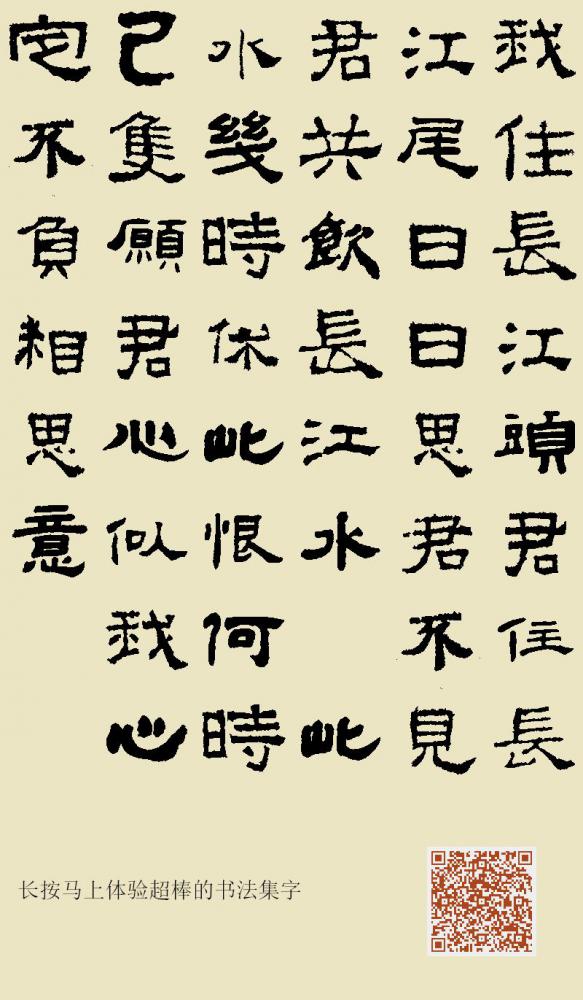 我住長江頭君住長
江尾日日思君不見
君共飲長江水 此
水幾時休此恨何時
已隻願君心似我心
定不負相思意
长按马上体验超棒的书法集字